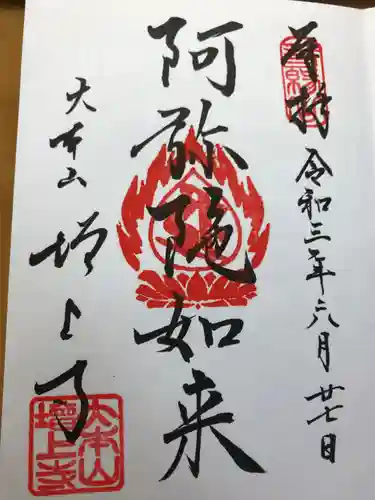 奉拝
令和三年六月廿七日
阿弥陀如来
大本山
増上寺
大本山
増上寺